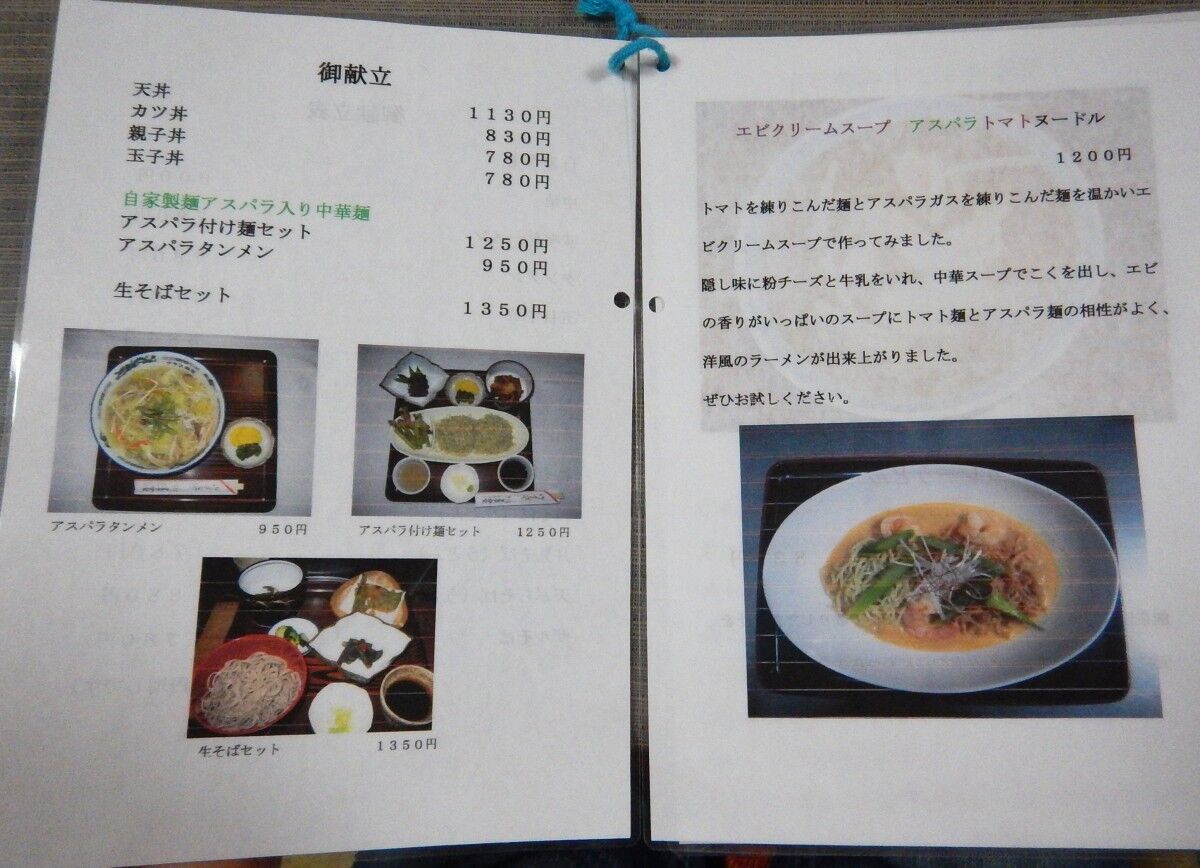 御献立
天丼 1130円
カツ丼 830円
親子丼 780円
玉子丼 780円
自家製麺アスパラ入り中華麺
アスパラ付け麺セット 1250円
アスパラタンメン 950円
生そばセット 1350円
アスパラタンメン 950円
アスパラ付け麺セット 1250円
生そばセット 1350円
エビクリームスープ アスパラトマトヌードル
1200円
トマトを練りこんだ麺とアスパラガスを練りこんだ麺を温かいエ
ビクリームスープで作ってみました。
隠し味に粉チーズと牛乳をいれ、中華スープでこくを出し、エビ
の香りがいっぱいのスープにトマト麺とアスパラ麺の相性がよく、
洋風のラーメンが出来上がりました。
ぜひお試しください。